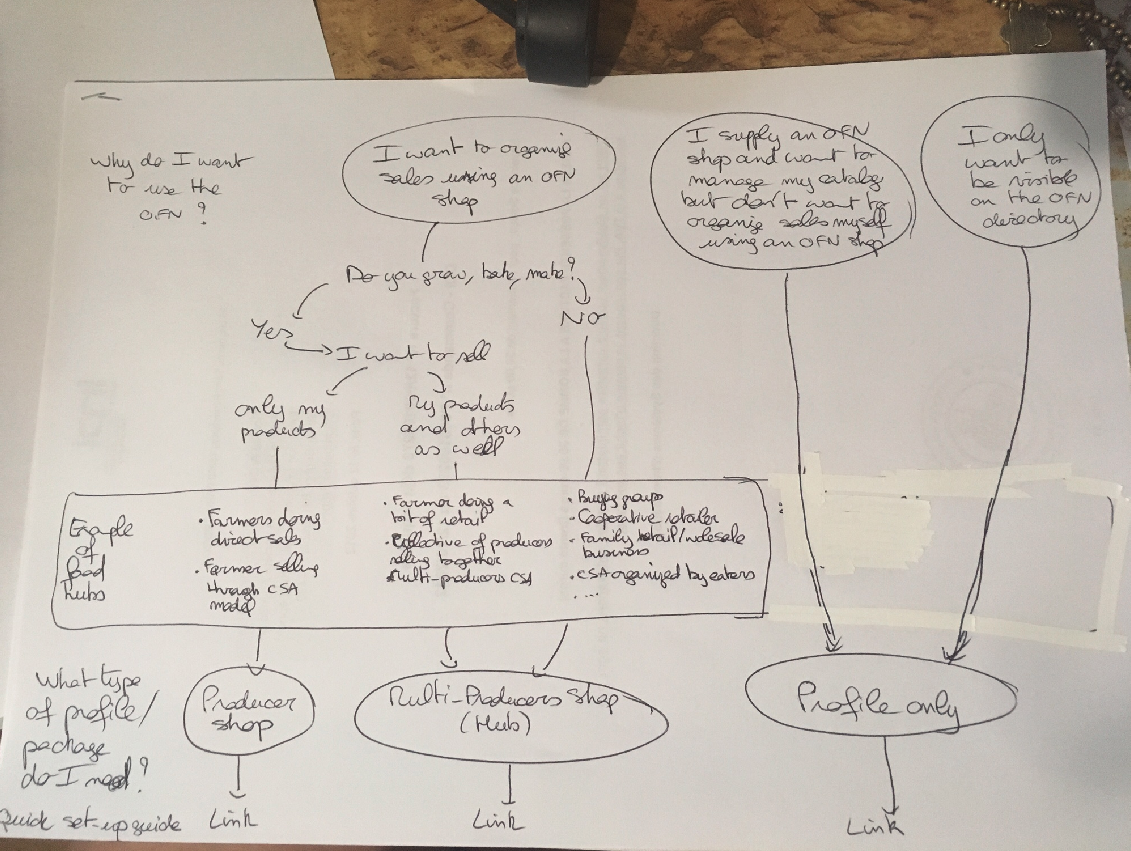 Why do I want
to use the
OFN?
I want to organise
sales using an OFN
shop
I supply an OFN
shop and want to
manage my catalog
but don't want to
organize sales myself
using an OFN shop
I only
want to
be visible
on the OFN
directory
Do you grow, bake, make?
Yes
NO
I want to sell
only my
products
My products
and others
as well
Example
of
food
hubs
• Farmers doing
direct sales
• Farmer selling
through CSA
model
• Farmer doing a
bit of retail
• Collective of producers
selling together
• Multi-producers CSA
• Buying groups
• Cooperative retailer
• Family retail/wholesale
business
• CSA organized by eaters
....
What type
of profile/
package
do I need?
Producer
shop
Multi-Producers shop
(Hub)
Profile only
Quick set-up guide
Link
Link
Link